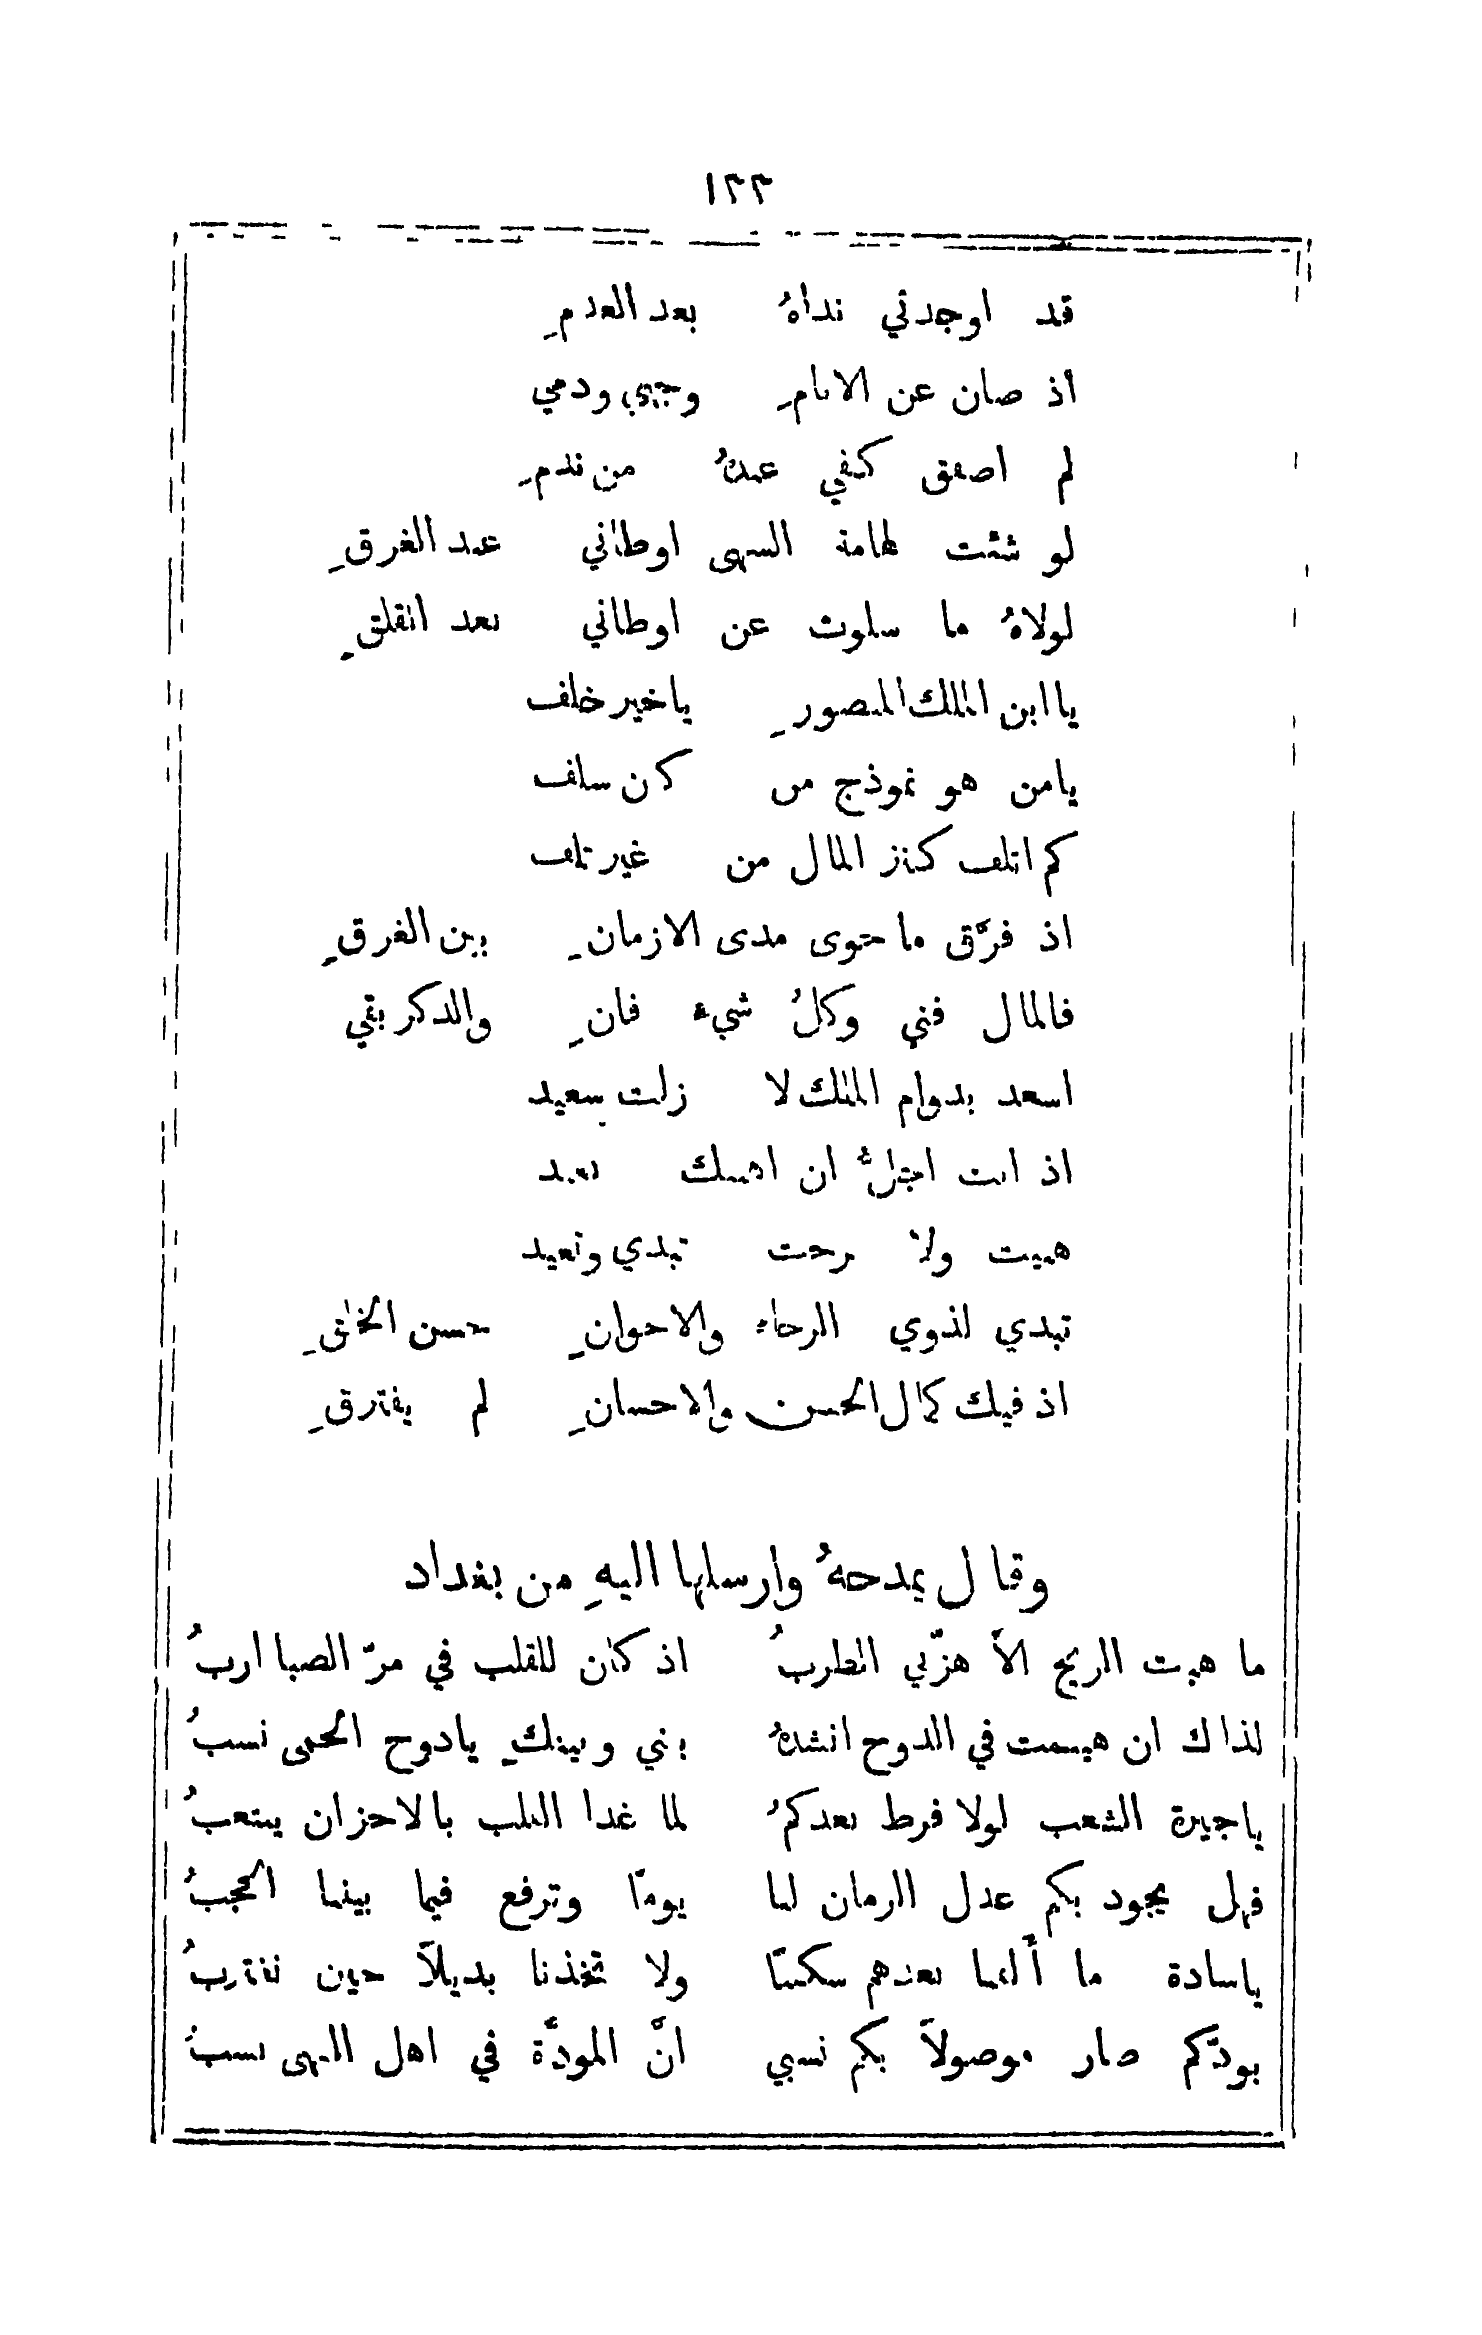 ١٢٢
قد اوجدني نداهُ بعد العدمِ
اذ صان عن الانامِ وجهي ودمي
لم اصفق كفي عندهُ من ندمِ
لو شئت لهامة السهى اوطاني عند الغرقِ
لولاهُ ما سلوت عن اوطاني بعد القلقِ
يا ابن الملك المنصورِ يا خير خلف
يا من هو نموذج من كان سلف
كم اتلف كنز المال من غير تلف
اذ فرَّق ما حتوى مدى الازمانِ بين الفرقِ
فالمال فني وكلُ شيء فانِ والذكر بقي
اسعد بدوام الملك لا زلت سعيد
اذ انت اجلُّ ان اهنيك بعيد
هنيت ولا برحت تبدي وتعيد
تبدي لذوي الرجاء والاخوانِ حسن الخلقِ
اذ فيك كمال الحسن والاحسانِ لم يفترقِ
وقال يمدحهُ وارسلها اليهِ من بغداد
ما هبت الريح الاَّ هزَّني الطربُ اذ كان للقلب في مرّ الصبا اربُ
لذاك ان هيمت في الدوح انشدهُ بيني وبينكِ يا دوح الحمى نسبُ
يا جيرة الشعب لولا فرط بعدكمُ لما غدا القلب بالاحزان ينتعبُ
فهل يجود بكم عدل الزمان لنا يومًا وترفع فيما بيننا الحجبُ
يا سادة ما أَلفنا بعدهم سكنًا ولا تخذنا بديلاً حين نغتربُ
بودّكم صار موصولاً بكم نسبي انَّ المودَّة في اهل النهى نسبُ